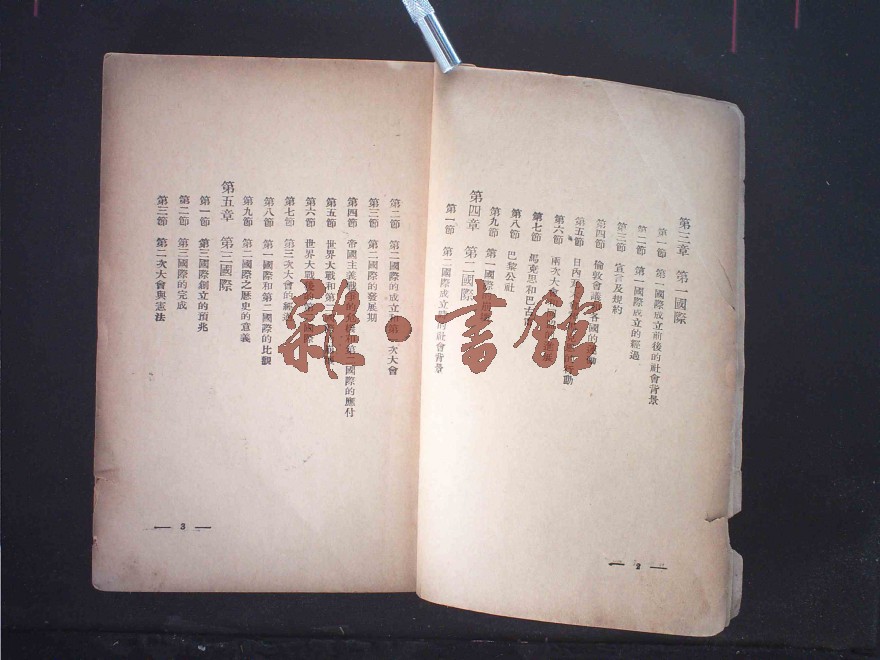 第三章 第一國際
第一節 第一國際成立前後的社會背景
第二節 第一國際成立的經過
第三節 宣言及規約
第四節 倫敦會議 各國的
第五節 日內瓦 動
第六節 兩次大會
第七節 馬克思和巴古
第八節 巴黎公社
第九節 第一國際的
第四章 第二國際
第一節 第二國際成立 的社會背景
— 2 —
第二節 第二國際的成立和第一次大會
第三節 第二國際的發展期
第四節 帝國主義戰爭的 和第二國際的應付
第五節 世界大戰和第二
第六節 世界大戰後 第二國際
第七節 第三次大會的經過
第八節 第一國際和第二國際的比觀
第九節 第二國際之歷史的意義
第五章 第三國際
第一節 第三國際創立的預兆
第二節 第三國際的完成
第三節 第二次大會與憲法
— 3 —
雜·書館